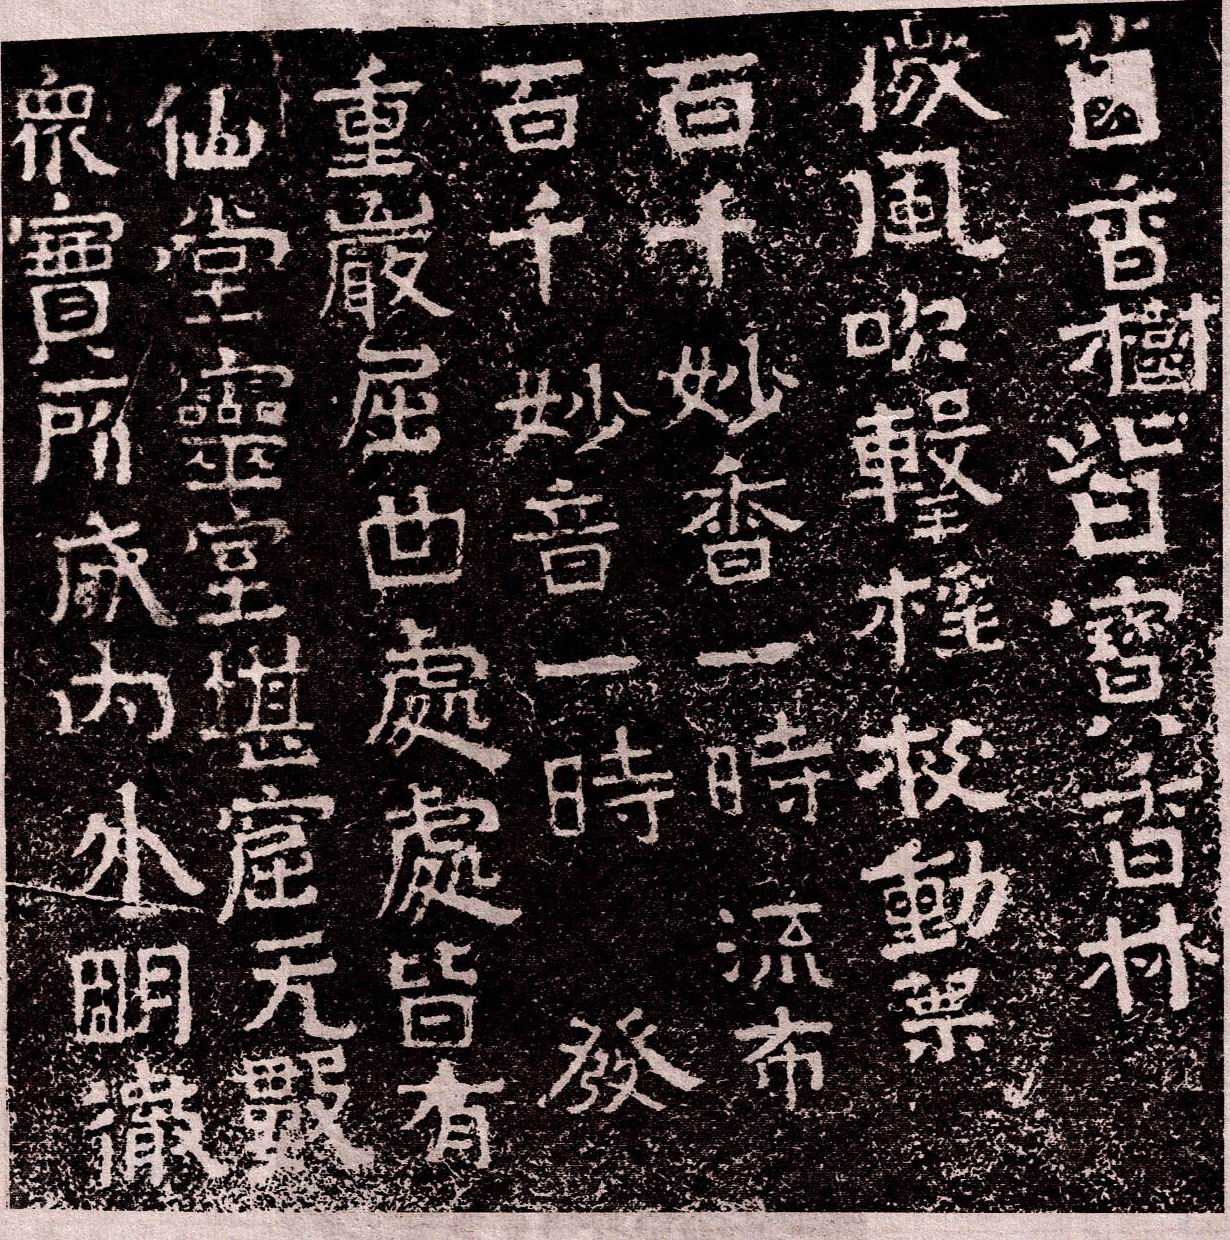 音樹皆寶香林
微風吹擊榣枝動葉
百千妙香一時流布
百千妙音一時發
重巖屈曲處處皆有
仙堂靈室堪窟无數
眾寶所成內外明徹